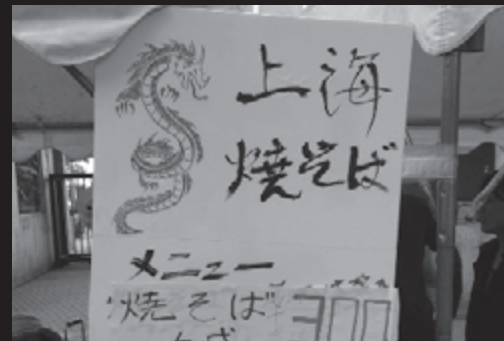 上海
焼そば
メニュー
焼そば 300